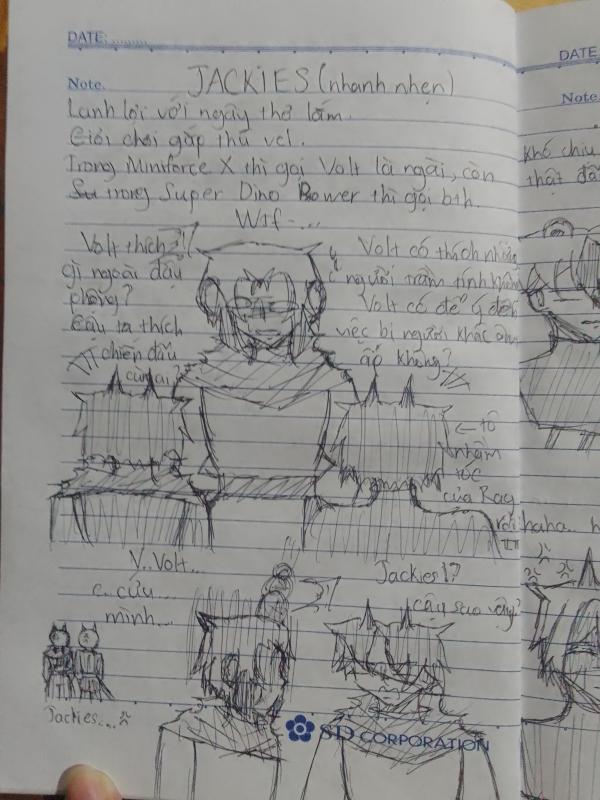 DATE: .........
Note.
JACKIES (nhanh nhẹn)
Lanh lợi với ngây thơ lắm.
Giỏi chơi gắp thú vcl.
Trong Miniforce X thì gọi Volt là ngài, còn
trong Super Dino Power thì gọi bth.
Wtf -...
Volt thích
gì ngoài đậu
phộng?
Cậu ta thích
chiến đấu
cùng ai?
Volt có thích những
người trầm tính không
Volt có để ý đến
việc bị người khác
ấp không?
← tô
nhầm
tóc
của Ray
rồi haha
V.. Volt...
c.. cứu
mình...
Jackies!?
cậu sao vậy?
Jackies....
STD CORPORATION
DATE
Note.
khó chịu
thật